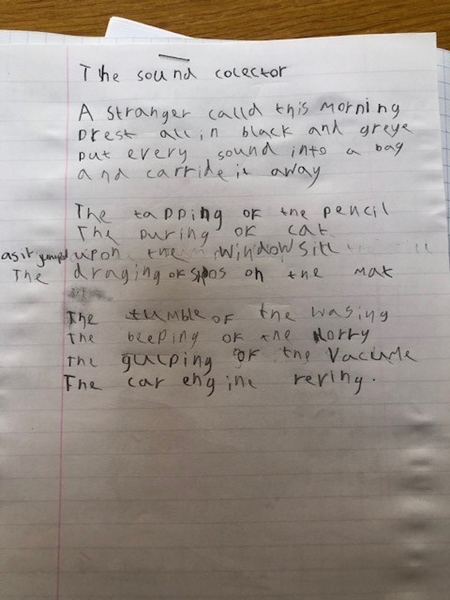 The sound colector
A stranger calld this morning
Drest all in black and greye
put every sound into a bag
and carride it away
The tapping of the pencil
The puring of cat
as it jumped upon the windowsill
The draging of on the mat
The tumble of the wasing
The beeping of the lorry
The gulping of the vacume
The car engine reving.